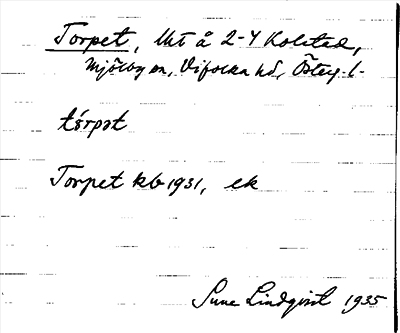 Torpet, Uti å 2-4 Kolstad,
Mjölby sn, Vifolka hd, Östg. l.
tórpət
Torpet kb 1931, ek
Sune Lindqvist 1935